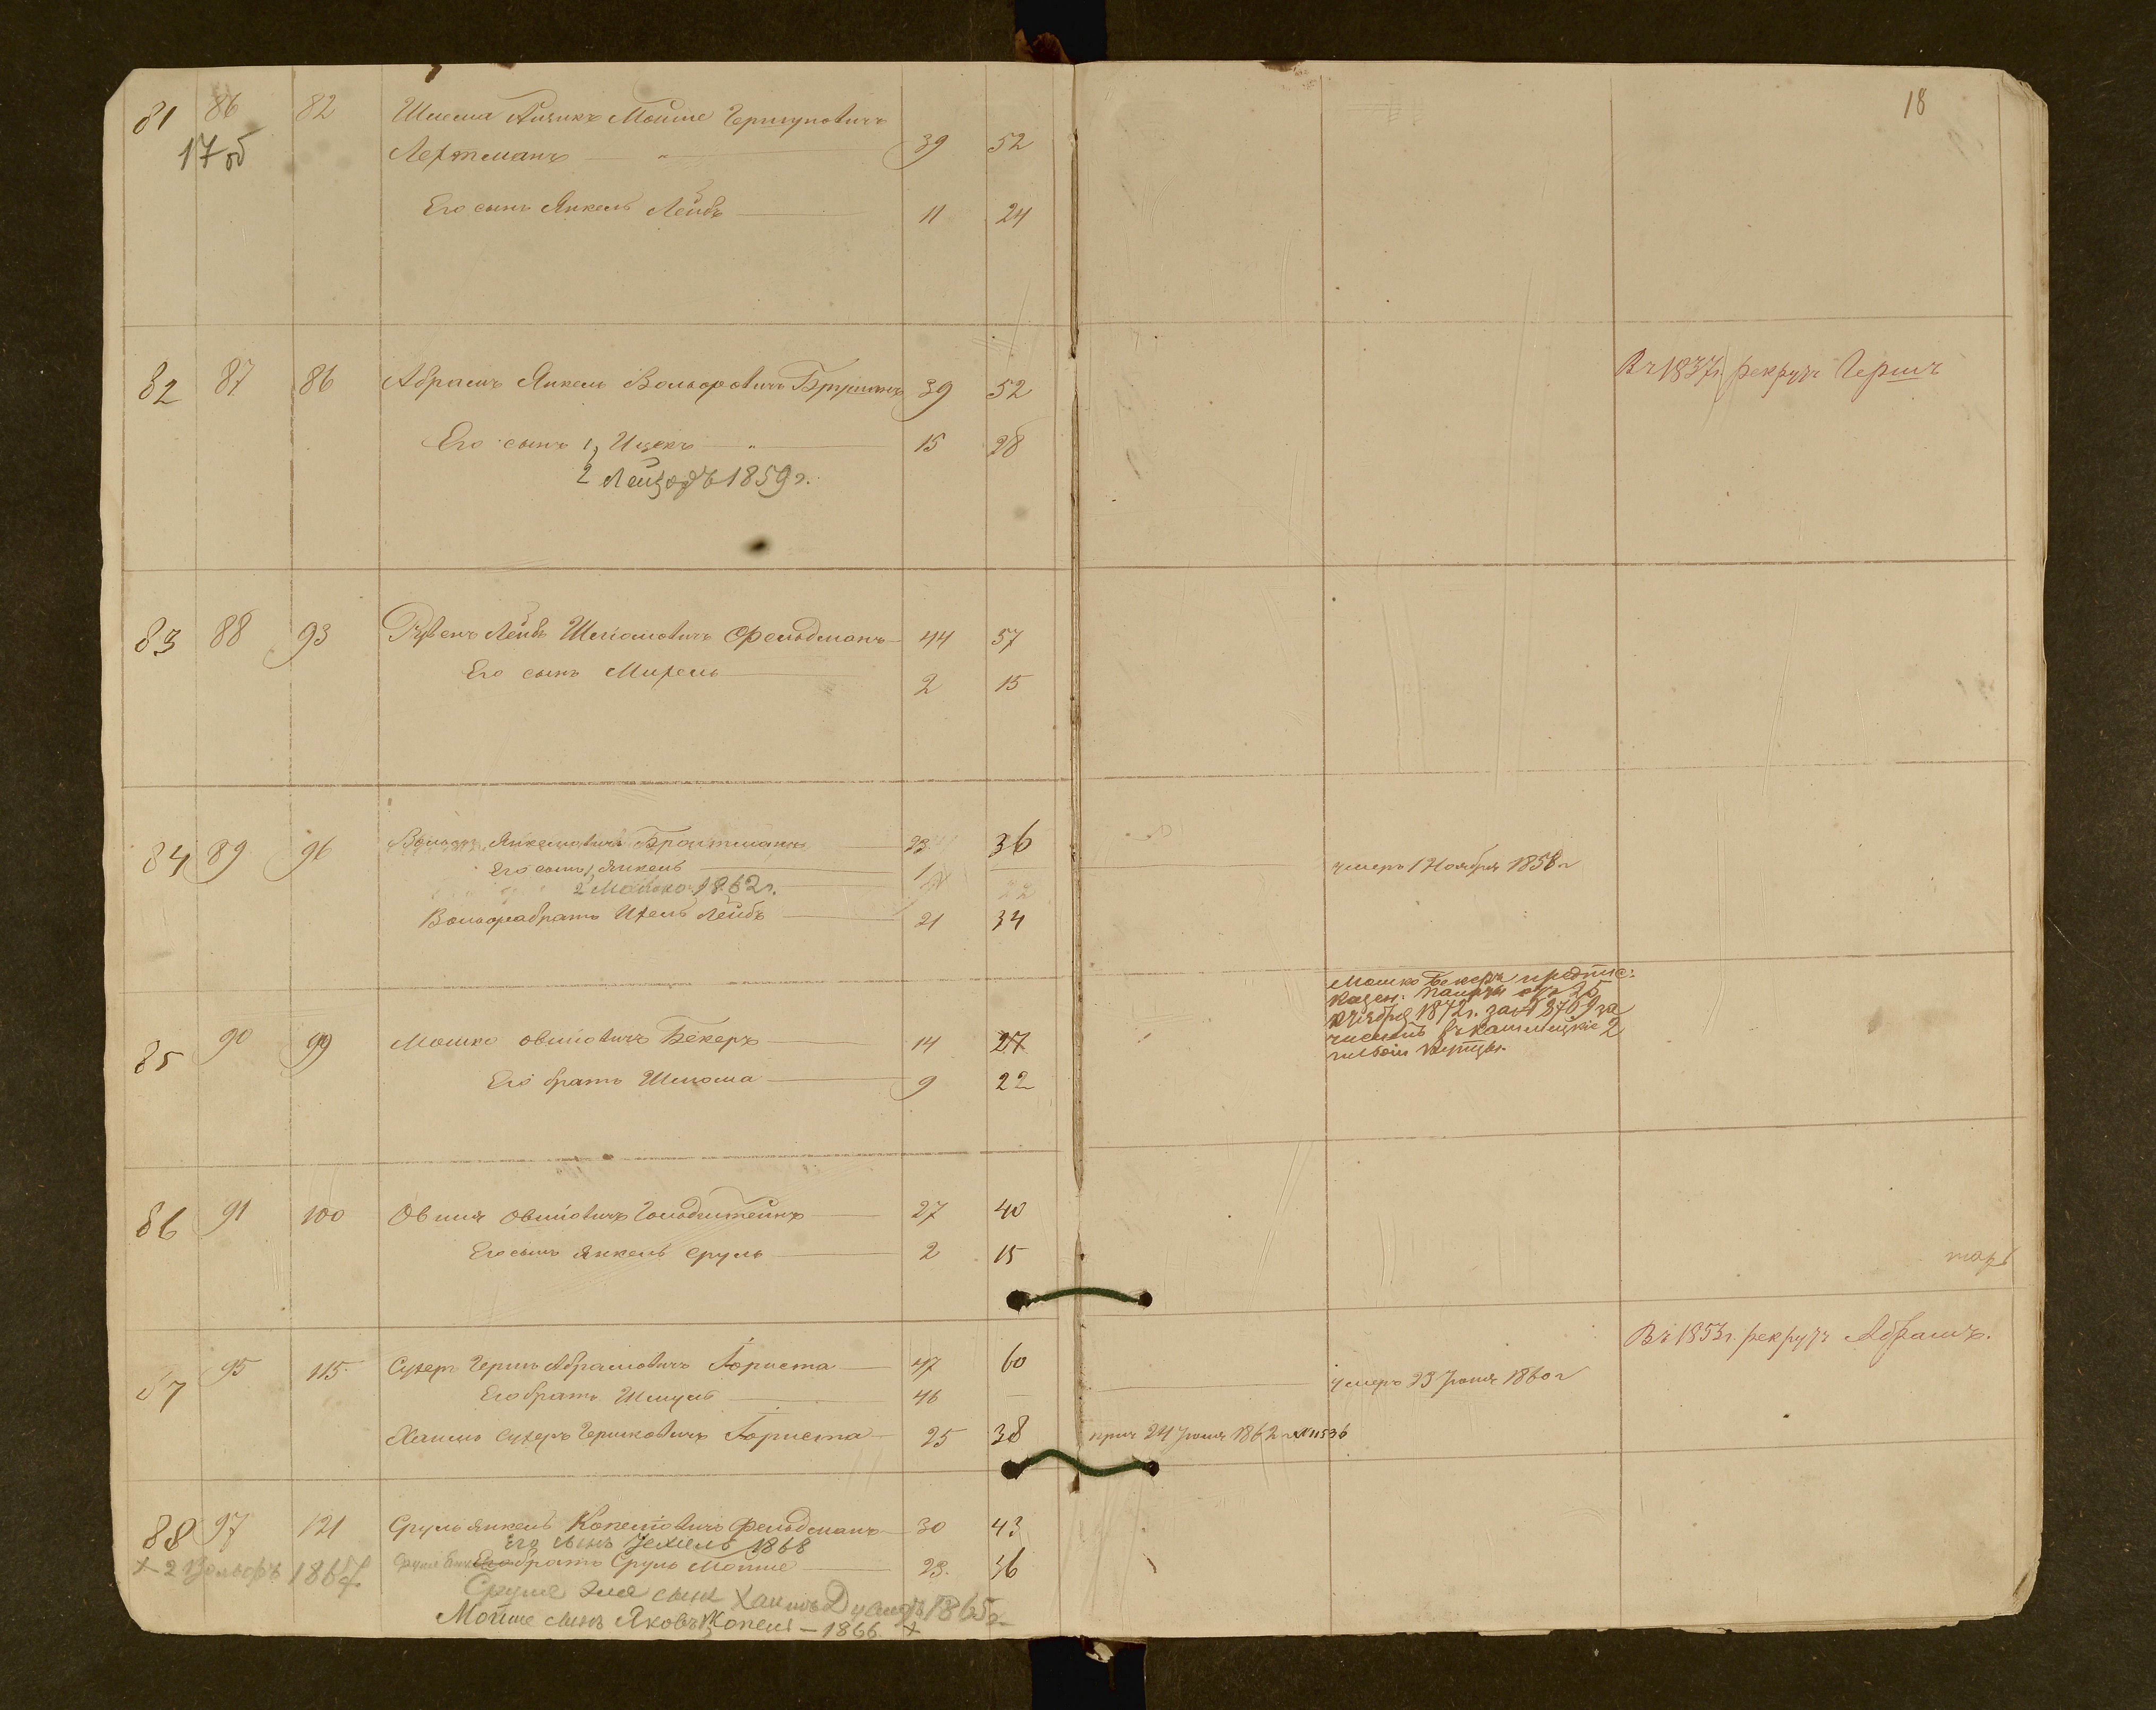 18
81 86 82 Шлема Айзикъ Мойше Гершуновичъ
17 об
Лехтманъ 39 52
Его сынъ Янкель Лейбъ 11 24
82 87 86 Абрамъ Янкель Вольфовичъ 39 52
Въ 1837 г. рекрутъ Гершъ
Его сынъ 1, Ицекъ 15 28
2 1859 г.
83 88 93 Рувенъ Лейбъ Шліомовичъ Фельдманъ 44 57
Его сынъ Михель 2 15
84 89 96 Вольфъ Янкелювичъ Бройтманъ 23 36
Его сынъ 1, Янкель 1 — умеръ 1 Ноября 1858 г
2 Мошко 1862 г.
Вольфа братъ Ихель Лейбъ 21 34
85 90 99 Мошко Овшіовичъ Бекеръ 14 27
Его братъ Шлиома 9 22
Мошко Бекеръ предпис:
Казен. Палаты отъ 25
1872 г. за № 8769 за
численъ въ 2
гильдіи купцы.
86 91 100 Овшія Овшіовичъ Гольдштейнъ 27 40
Его сынъ Янкель Сруль 2 15
87 95 115 Сухеръ Гершъ Абрамовичъ Фориста 47 60
Въ 1853 г. рекрутъ Абрамъ.
Его братъ Шмуль 46 — умеръ 23 Іюня 1860 г
Хаимъ Сухеръ Гершковичъ Фориста 25 38 прич 24 Іюня 1862 г № 11536
88 97 121 Сруль Янкель Копелювичъ Фельдманъ 30 43
Его сынъ Іехиель 1868
+ 2 Вольфъ 1867
братъ Сруль Мойше 23. 36
Сруля сынъ Хаимъ 1865 г.
Мойше сынъ Яковъ Копель – 1866 +